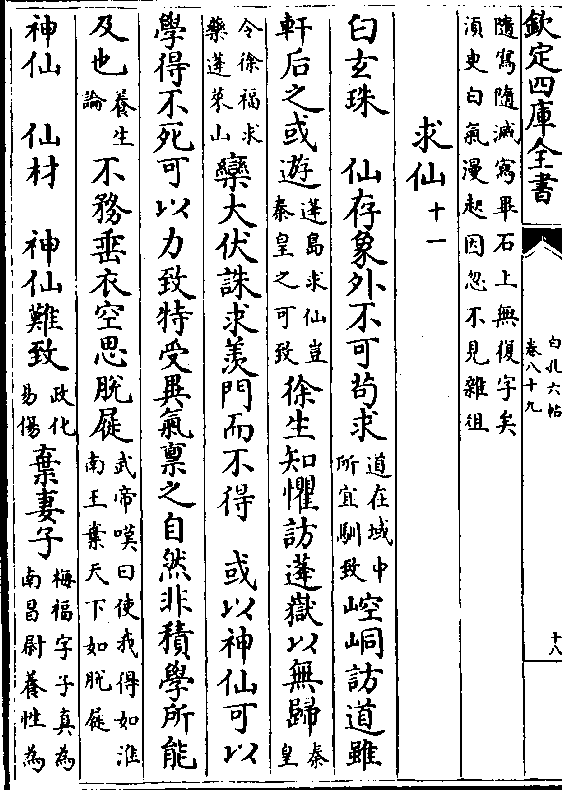 欽定四庫全書
白孔六帖
卷八十九
十八
隨寫隨滅寫畢石上無復字矣
須臾白氣漫起因忽不見雜俎
求仙十一
白玄珠 仙存象外不可苟求 道在域中所宜馴致 崆峒訪道雖
軒后之或遊 蓬島求仙豈秦皇之可致 徐生知懼訪蓬嶽以無歸 秦皇
令徐福求藥蓬萊山 欒大伏誅求羨門而不得 或以神仙可以
學得不死可以力致特受異氣禀之自然非積學所能
及也 養生論 不務垂衣空思脫屣 武帝嘆曰使我得如淮南王棄天下如脫屣
神仙 仙材 神仙難致 政化易傷 棄妻子 梅福字子真為南昌尉養性為